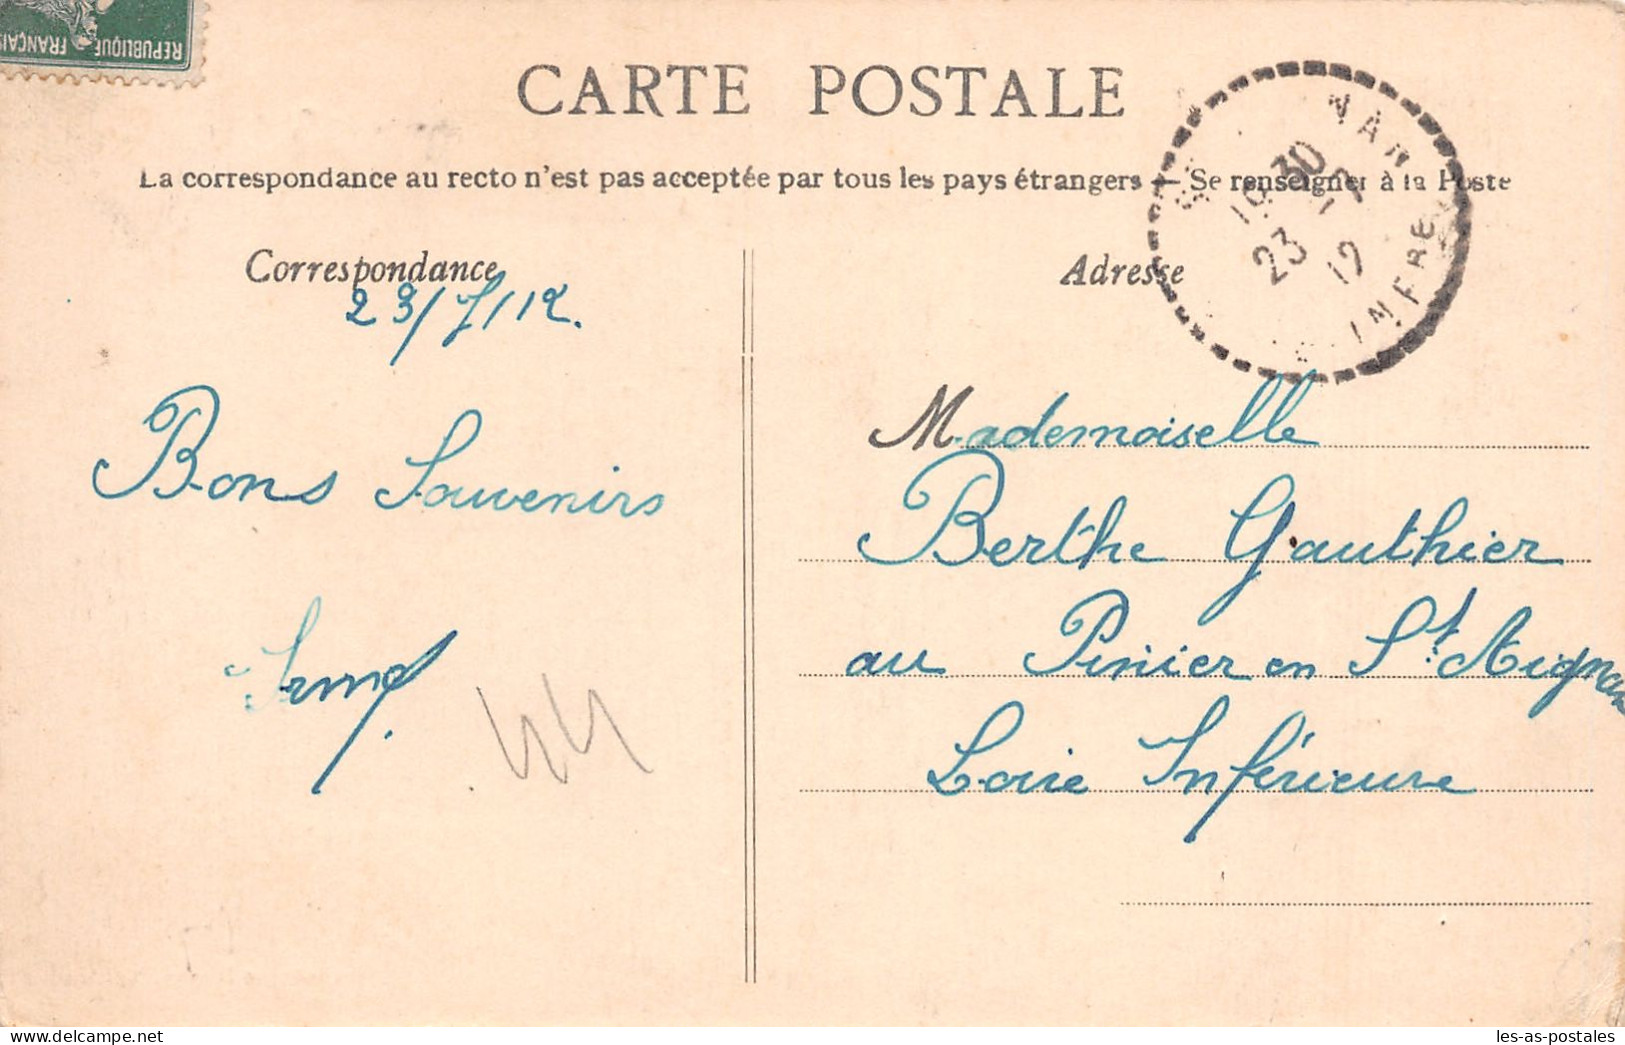 REPUBLIQUE FRANÇAIS
CARTE POSTALE
La correspondance au recto n'est pas acceptée par tous les pays étrangers — Se renseigner à la Poste
Correspondance
23/7/12.
Bons Souvenirs
44
Adresse
Mademoiselle
Berthe Gauthier
au Pinier en St. Aignan
Loire Inférieure
30
23 12
INFRE
delcampe.net
les-as-postales